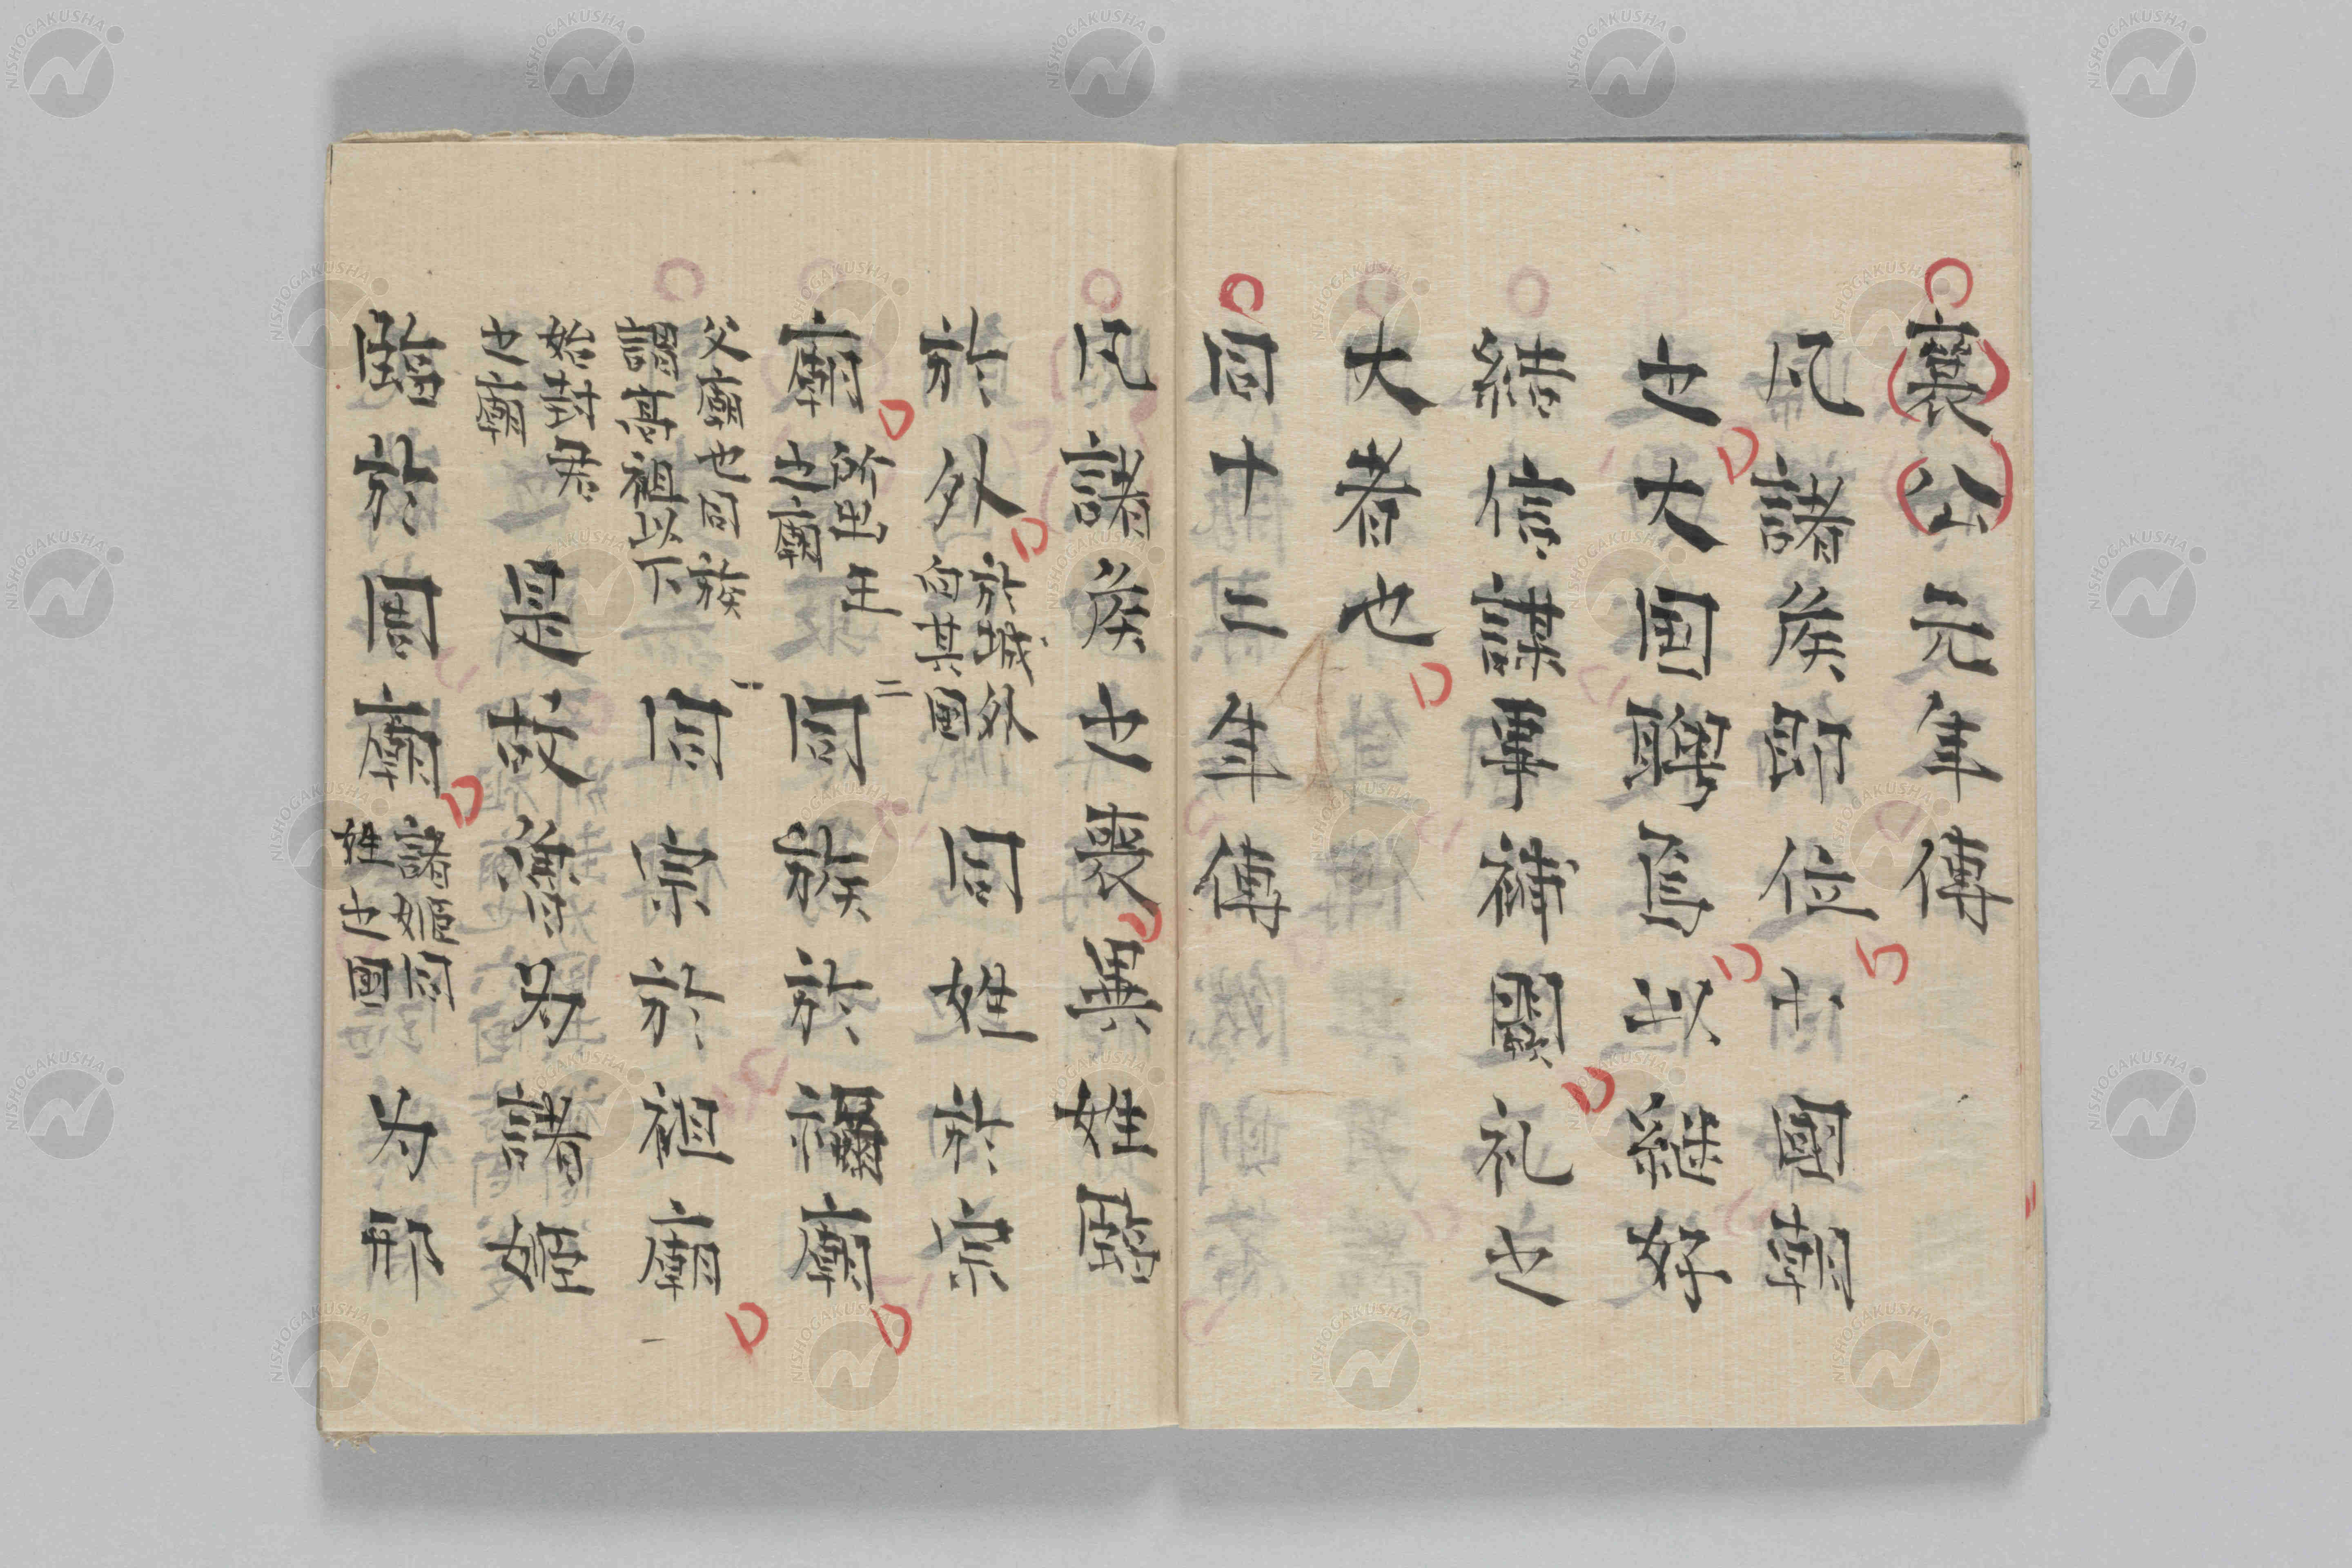 襄公元年傳
凡諸侯即位小國朝
之大國聘焉以繼好
結信謀事補闕礼之
大者也
同十三年傳
凡諸侯之喪異姓臨
於外於城外向其國同姓於宗
廟所出王之廟二同族於禰廟
父廟也同族謂高祖以下一同宗於祖廟
始封君之廟是故魯為諸姬
臨於周廟諸姬同姓之國為邢
NISHOGAKUSHA